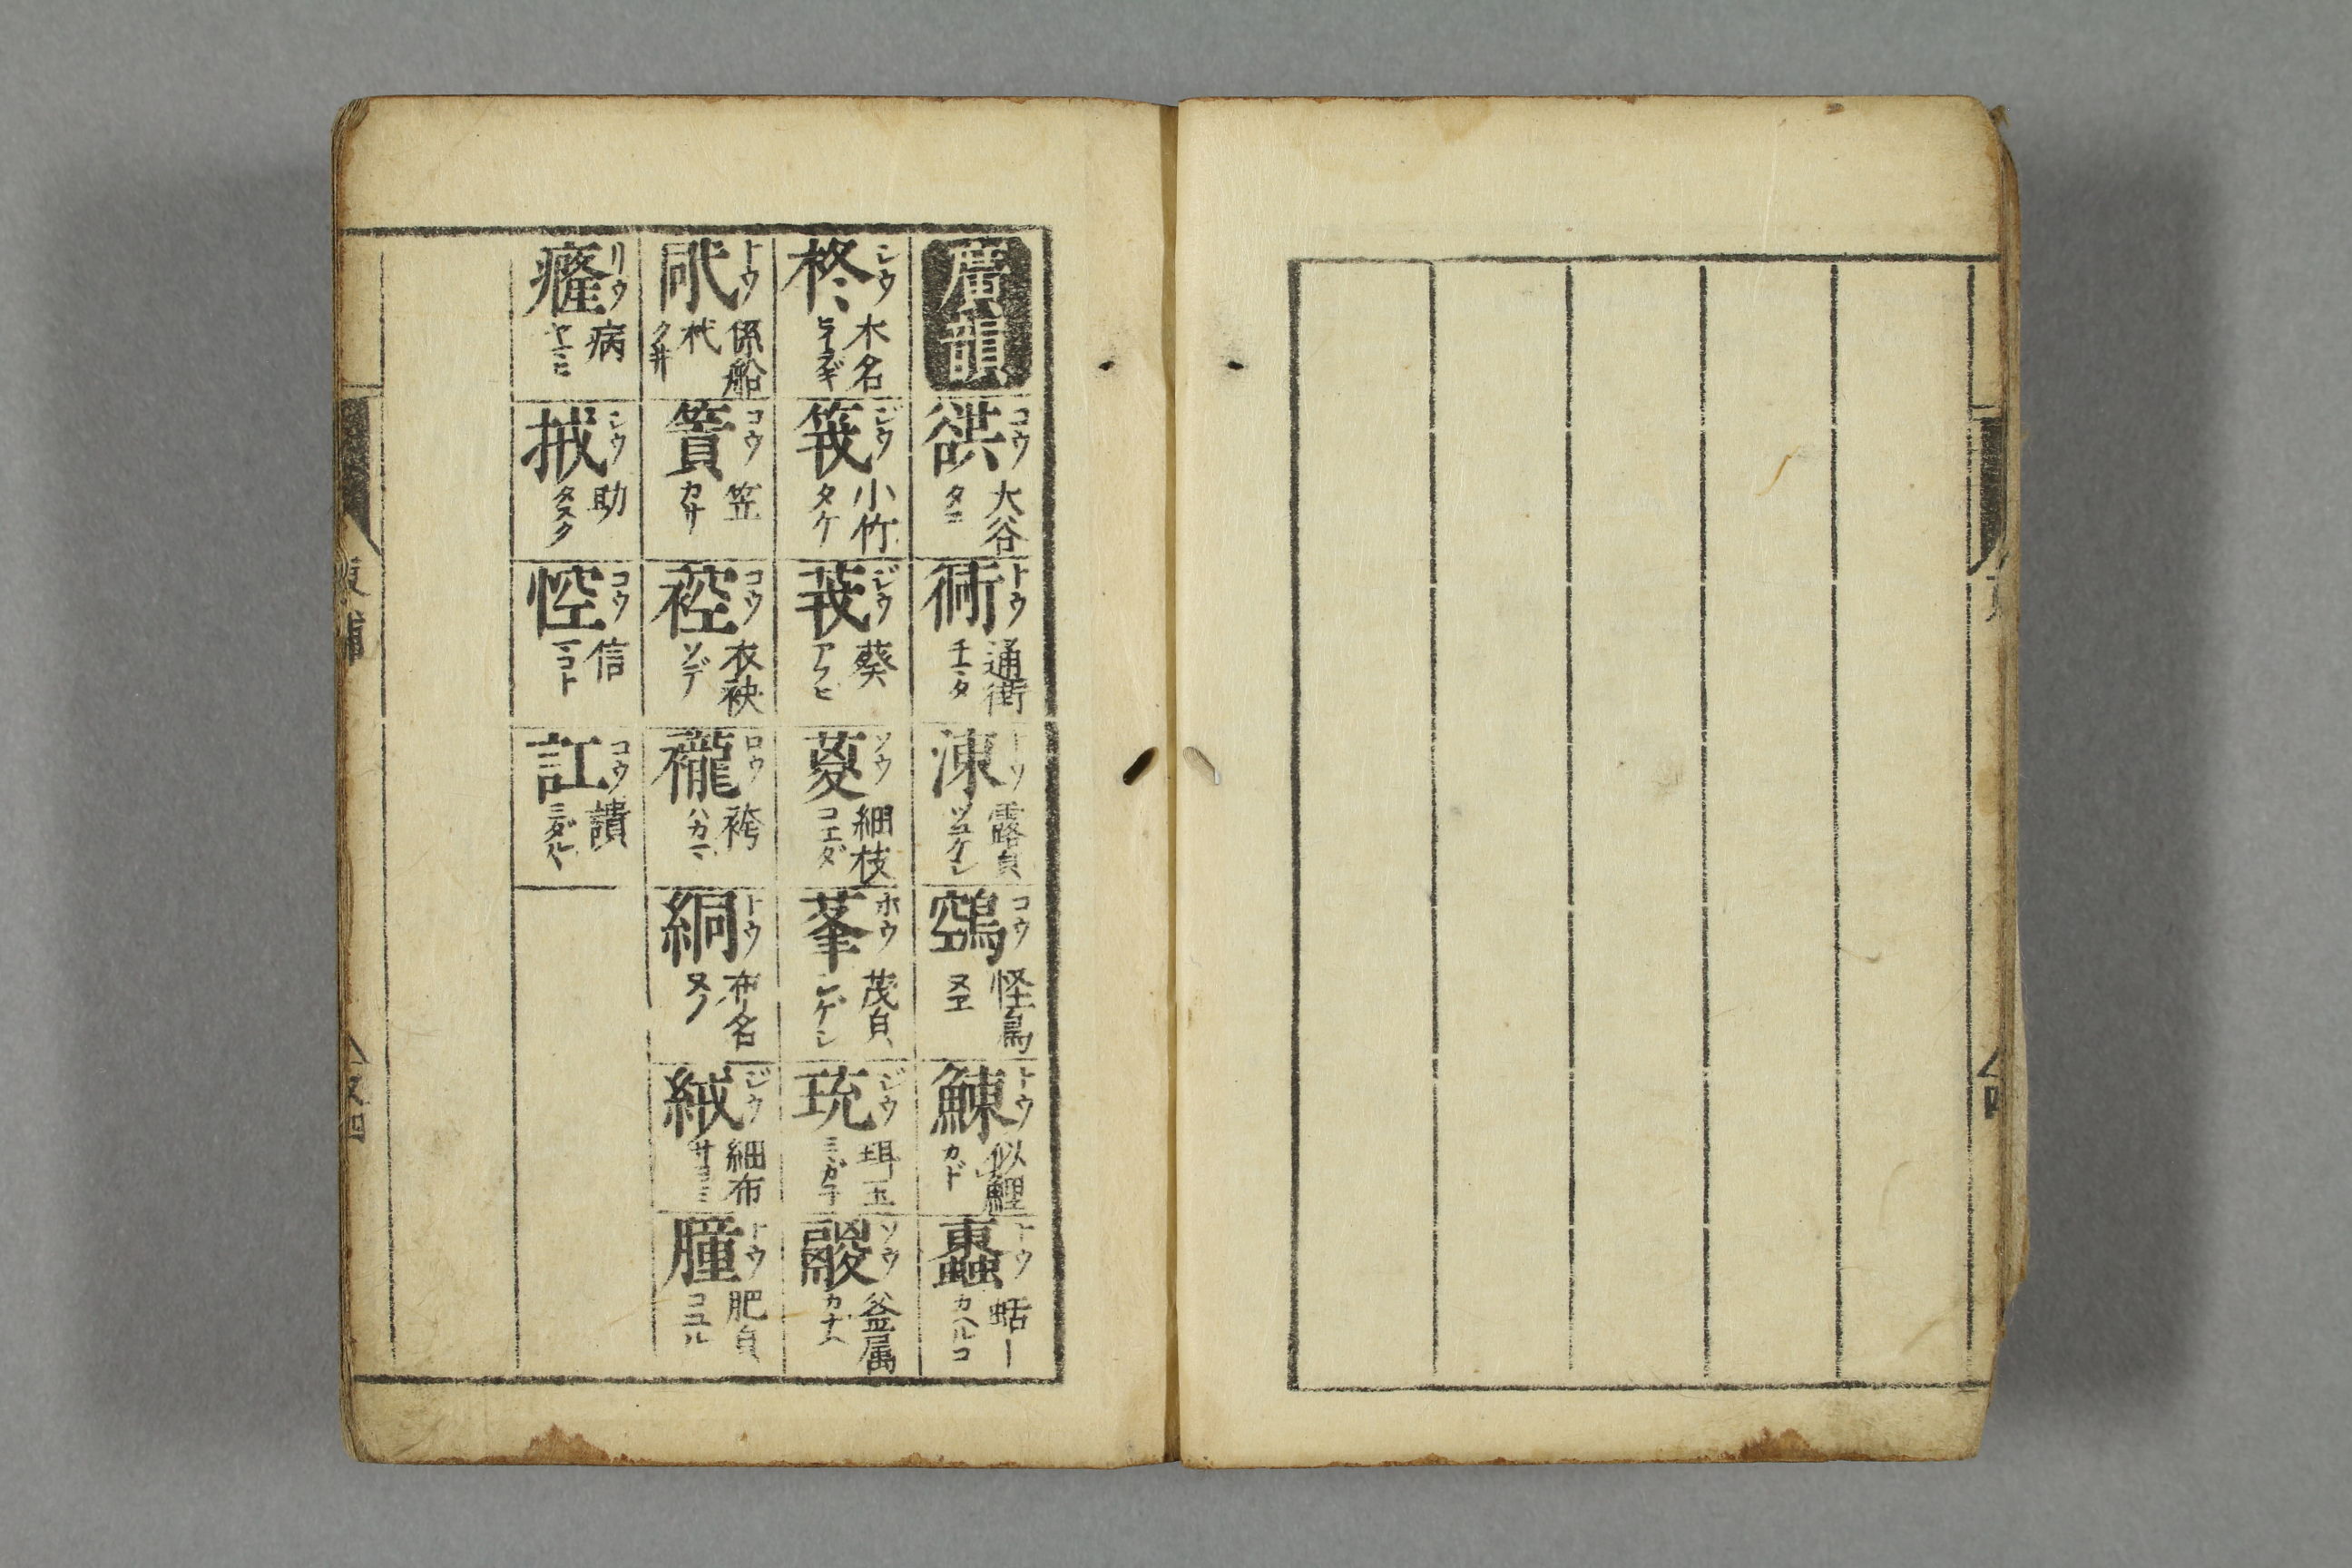 廣韻
谼 コウ 大谷 タニ
衕 トウ 通街 チマタ
涷 トウ 露皃 ツユケシ
鵼 コウ 怪鳥 ヌエ
鯟 トウ 似鯉 カド
螙 トウ 蛞ー カヘルコ
柊 シウ 木名 ヒラギ
筬 ジウ 小竹 タケ
茙 ジウ 葵 アフヒ
葼 ソウ 細枝 コエダ
莑 ホウ 茂皃 シゲシ
珫 ジウ 珥玉 ミミガネ
鬷 ソウ 釜属 カナヘ
戙 トウ 係船杙 クヰ
篢 コウ 笠 カサ
䅝 コウ 衣袂 ソデ
襱 ロウ 袴 ハカマ
絧 トウ 布名 ヌノ
絨 ジウ 細布 サヨミ
膧 トウ 肥皃 コユル
癃 リウ 病 ヤマヒ
㧡 シウ 助 タスク
悾 コウ 信 マコト
訌 コウ 讃 ミダル
東補
又四